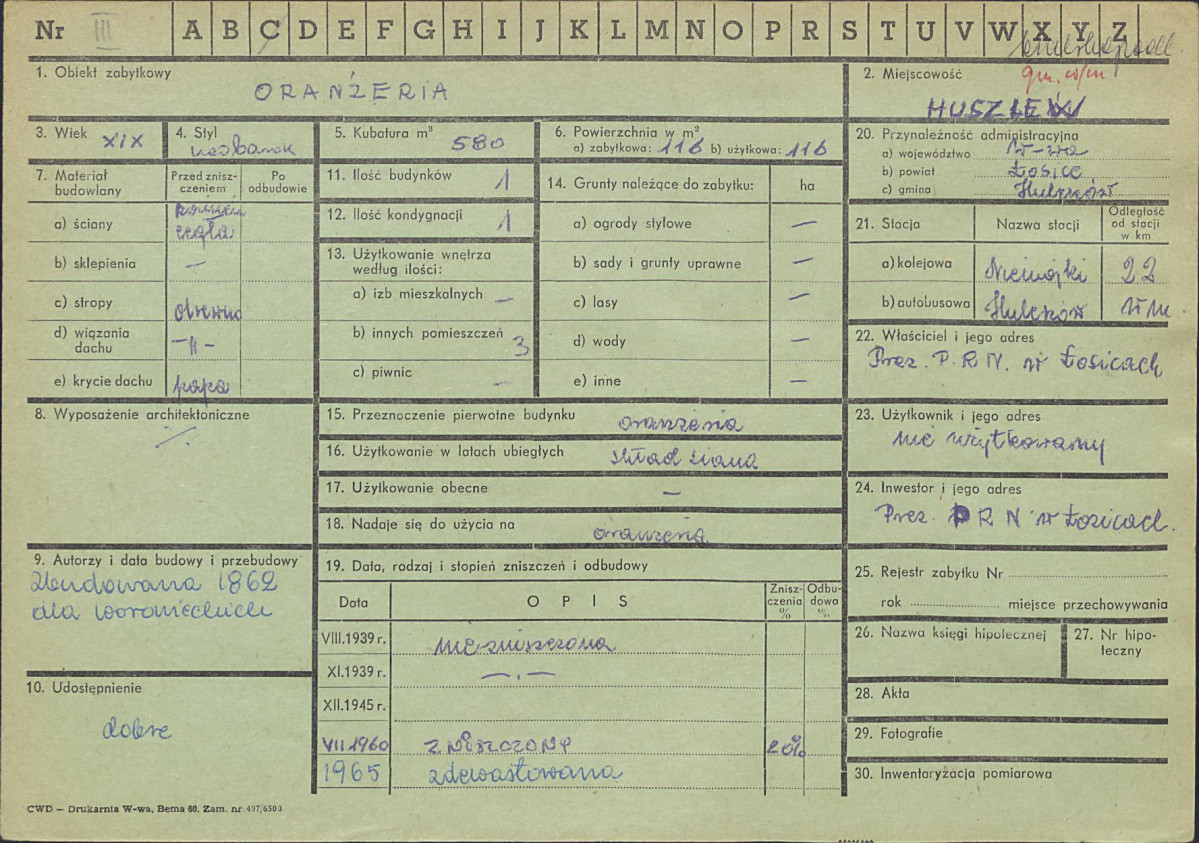 Nr III A B C D E F G H I J K L M N O P R S T U V W X Y Z
1. Obiekt zabytkowy
ORANŻERIA
2. Miejscowość
gm. w/m
HUSZLEW
3. Wiek XIX
4. Styl
neobarok
5. Kubatura m³ 580
6. Powierzchnia w m²
a) zabytkowa: 116 b) użytkowa: 116
20. Przynależność administracyjna
a) województwo W-wa
b) powiat Łosice
c) gmina Huszlew
7. Materiał budowlany
Przed zniszczeniem
Po odbudowie
a) ściany
cegła
b) sklepienia —
c) stropy drewno
d) wiązania dachu -„-
e) krycie dachu papa
11. Ilość budynków 1
12. Ilość kondygnacji 1
13. Użytkowanie wnętrza
według ilości:
a) izb mieszkalnych —
b) innych pomieszczeń 3
c) piwnic —
14. Grunty należące do zabytku: ha
a) ogrody stylowe —
b) sady i grunty uprawne —
c) lasy —
d) wody —
e) inne —
21. Stacja
Nazwa stacji
Odległość od stacji w km
a) kolejowa Niemojki 22
b) autobusowa Huszlew w m.
22. Właściciel i jego adres
Prez. P. R N. w Łosicach
8. Wyposażenie architektoniczne
-/.
15. Przeznoczenie pierwotne budynku oranżeria
16. Użytkowanie w latach ubiegłych skład siana
17. Użytkowanie obecne —
18. Nadaje się do użycia na oranżeria
23. Użytkownik i jego adres
nie użytkowany
24. Inwestor i jego adres
Prez. P R N w Łosicach.
9. Autorzy i data budowy i przebudowy
Zbudowana 1862
dla Woronieckich
10. Udostępnienie
dobre
19. Data, rodzaj i stopień zniszczeń i odbudowy
Data
O P I S
Zniszczenia %
Odbudowa %
VIII.1939 r. nie zniszczona
XI.1939 r. —„—
XII.1945 r.
VII 1960 ZNISZCZONY 20%
1965 zdewastowana
25. Rejestr zabytku Nr
rok miejsce przechowywania
26. Nazwa księgi hipotecznej
27. Nr hipoteczny
28. Akta
29. Fotografie
30. Inwentaryzacja pomiarowa
CWD — Drukarnia W-wa, Bema 60. Zam. nr 497/6500